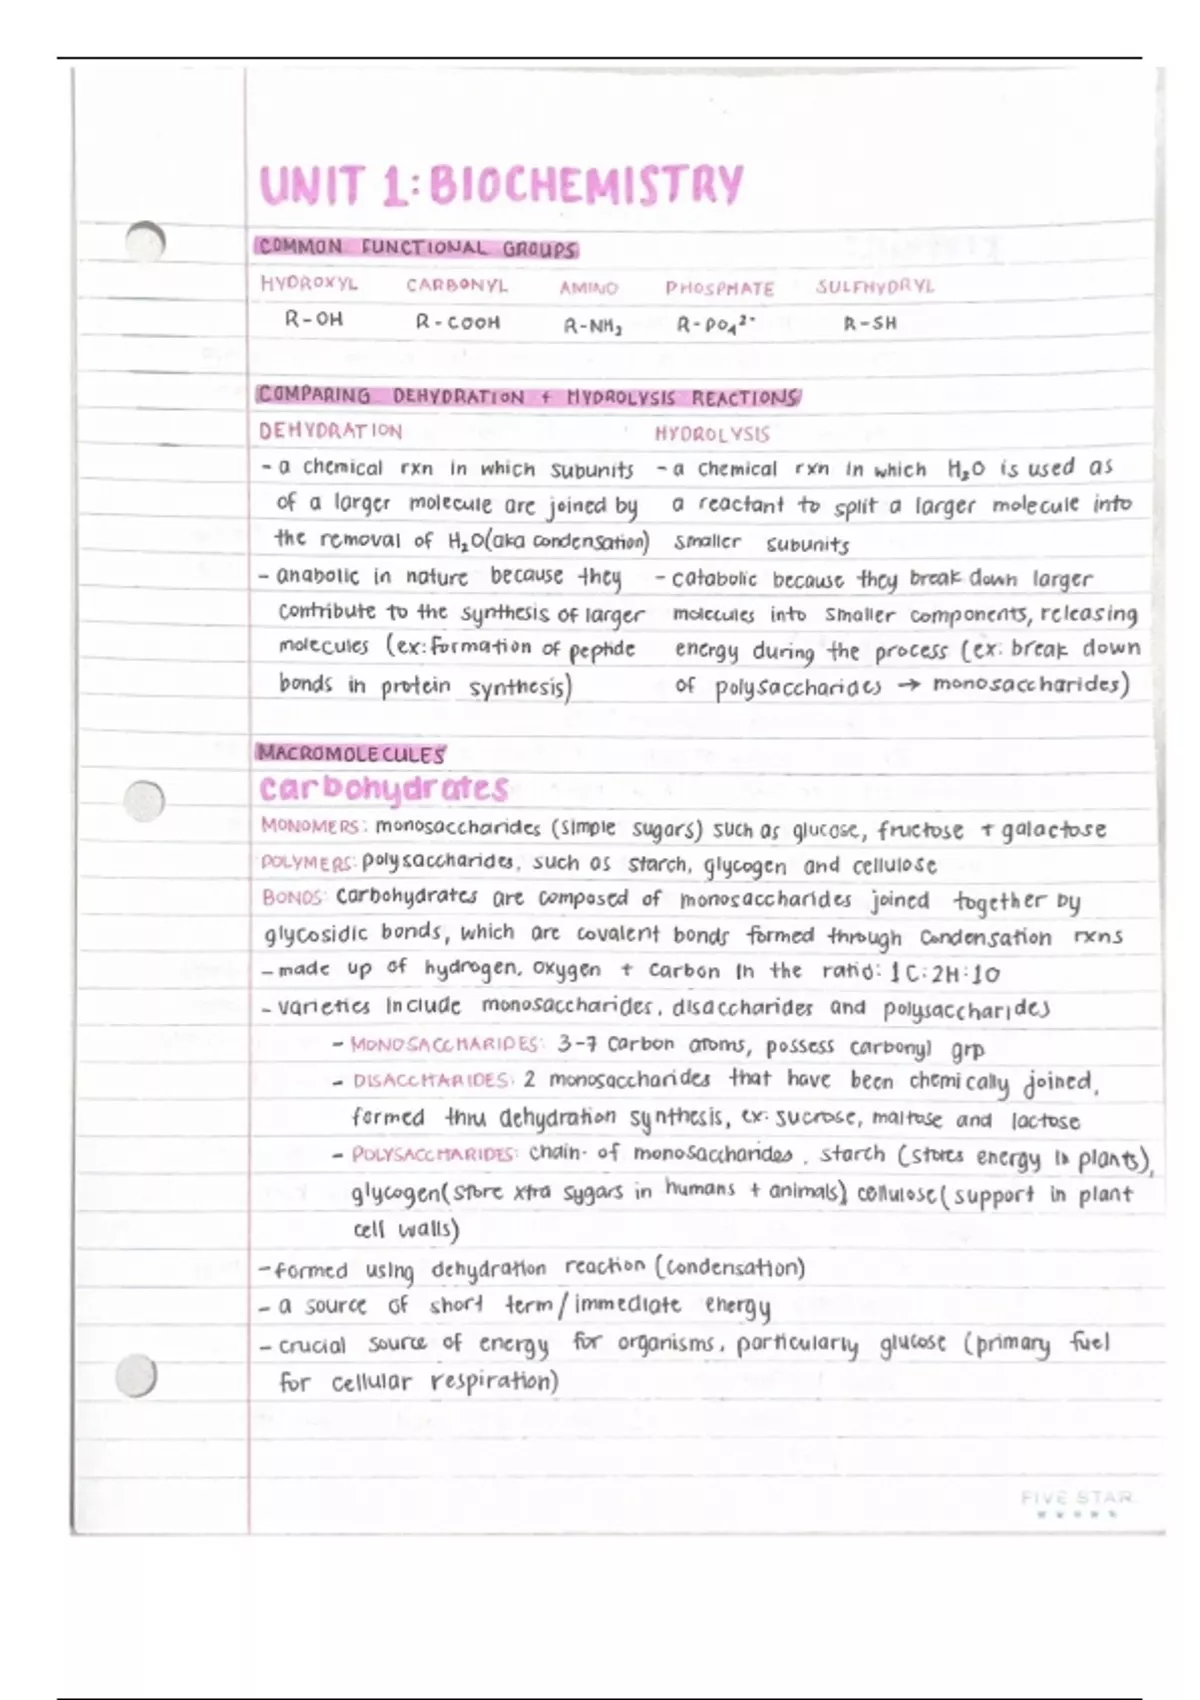 UNIT 1: BIOCHEMISTRY
COMMON FUNCTIONAL GROUPS
HYDROXYL CARBONYL AMINO PHOSPHATE SULFHYDRYL
R-OH R-COOH R-NH₂ R-PO₄²⁻ R-SH
COMPARING DEHYDRATION + HYDROLYSIS REACTIONS
DEHYDRATION HYDROLYSIS
- a chemical rxn in which subunits - a chemical rxn in which H₂O is used as
of a larger molecule are joined by a reactant to split a larger molecule into
the removal of H₂O (aka condensation) smaller subunits
- anabolic in nature because they - catabolic because they break down larger
contribute to the synthesis of larger molecules into smaller components, releasing
molecules (ex: formation of peptide energy during the process (ex: break down
bonds in protein synthesis) of polysaccharides → monosaccharides)
MACROMOLECULES
carbohydrates
MONOMERS: monosaccharides (simple sugars) such as glucose, fructose + galactose
POLYMERS: polysaccharides, such as starch, glycogen and cellulose
BONDS: Carbohydrates are composed of monosaccharides joined together by
glycosidic bonds, which are covalent bonds formed through condensation rxns
- made up of hydrogen, oxygen + carbon in the ratio: 1C:2H:1O
- varieties include monosaccharides, disaccharides and polysaccharides
- MONOSACCHARIDES: 3-7 carbon atoms, possess carbonyl grp
- DISACCHARIDES: 2 monosaccharides that have been chemically joined,
formed thru dehydration synthesis, ex: sucrose, maltose and lactose
- POLYSACCHARIDES: chain of monosaccharides, starch (stores energy in plants),
glycogen (store xtra sygars in humans + animals), cellulose (support in plant
cell walls)
- formed using dehydration reaction (condensation)
- a source of short term/immediate energy
- crucial source of energy for organisms, particularly glucose (primary fuel
for cellular respiration)
FIVE STAR